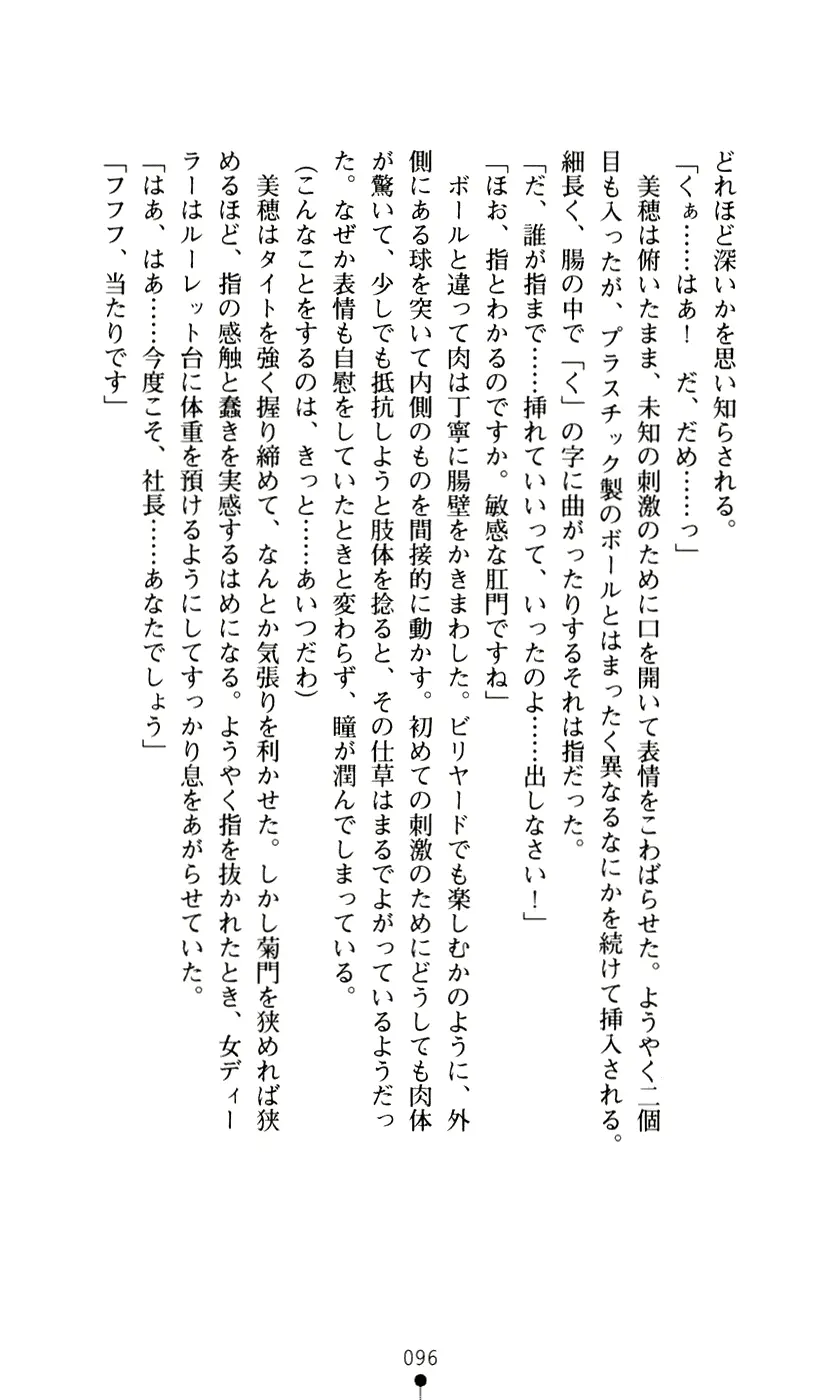 どれほど深いかを思い知らされる。
「くぁ……はあ！　だ、だめ……っ」
　美穂は俯いたまま、未知の刺激のために口を開いて表情をこわばらせた。ようやく二個
目も入ったが、プラスチック製のボールとはまったく異なるなにかを続けて挿入される。
細長く、腸の中で「く」の字に曲がったりするそれは指だった。
「だ、誰が指まで……挿れていいって、いったのよ……出しなさい！」
「ほお、指とわかるのですか。敏感な肛門ですね」
　ボールと違って肉は丁寧に腸壁をかきまわした。ビリヤードでも楽しむかのように、外
側にある球を突いて内側のものを間接的に動かす。初めての刺激のためにどうしても肉体
が驚いて、少しでも抵抗しようと肢体を捻ると、その仕草はまるでよがっているようだっ
た。なぜか表情も自慰をしていたときと変わらず、瞳が潤んでしまっている。
（こんなことをするのは、きっと……あいつだわ）
　美穂はタイトを強く握り締めて、なんとか気張りを利かせた。しかし菊門を狭めれば狭
めるほど、指の感触と蠢きを実感するはめになる。ようやく指を抜かれたとき、女ディー
ラーはルーレット台に体重を預けるようにしてすっかり息をあがらせていた。
「はあ、はあ……今度こそ、社長……あなたでしょう」
「フフフ、当たりです」
096